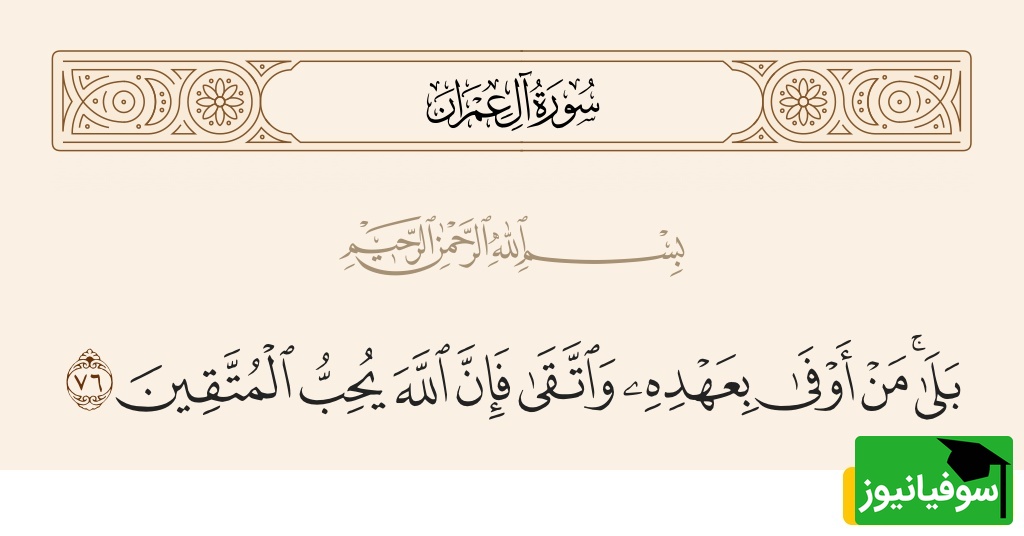 سُورَةُ آلِ عِمْرَانَ
بِسْمِ ٱللَّهِ ٱلرَّحْمَٰنِ ٱلرَّحِيمِ
بَلَىٰۚ مَنْ أَوْفَىٰ بِعَهْدِهِۦ وَٱتَّقَىٰ فَإِنَّ ٱللَّهَ يُحِبُّ ٱلْمُتَّقِينَ ٧٦
سوفیانیوز